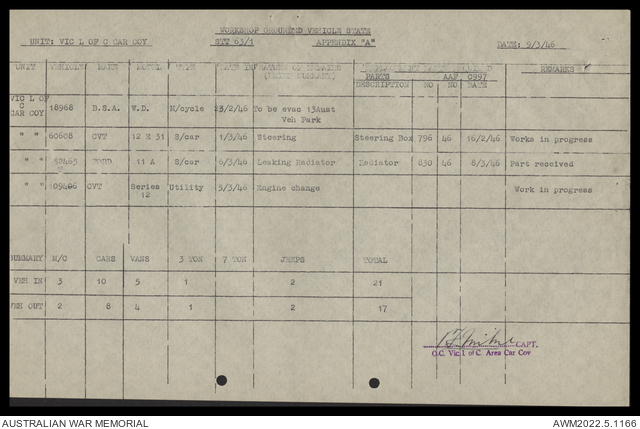 WORKSHOP GROUNDED VEHICLE STATE
UNIT: VIC L OF C CAR COY STT 63/1 APPENDIX "A" DATE: 9/3/46
UNIT VEHICLE MAKE MODEL TYPE REMARKS
PARTS AAF C997
DESCRIPTION NO NO DATE
VIC L OF
C
CAR COY 18968 B.S.A. W.D. M/cycle 23/2/46 To be evac 13Aust
Veh Park
" " 60608 CVT 12 E 31 S/car 1/3/46 Steering Steering Box 796 46 16/2/46 Works in progress
" " FORD 11 A S/car 6/3/46 Leaking Radiator Radiator 830 46 8/3/46 Part received
" " 109406 CVT Series Utility 5/3/46 Engine change Work in progress
12
SUMMARY M/C CARS VANS 3 TON 7 TON JEEPS TOTAL
VEH IN 3 10 5 1 2 21
VEH OUT 2 8 4 1 2 17
CAPT.
O.C. Vic. L of C. Area Car Coy
AUSTRALIAN WAR MEMORIAL AWM2022.5.1166